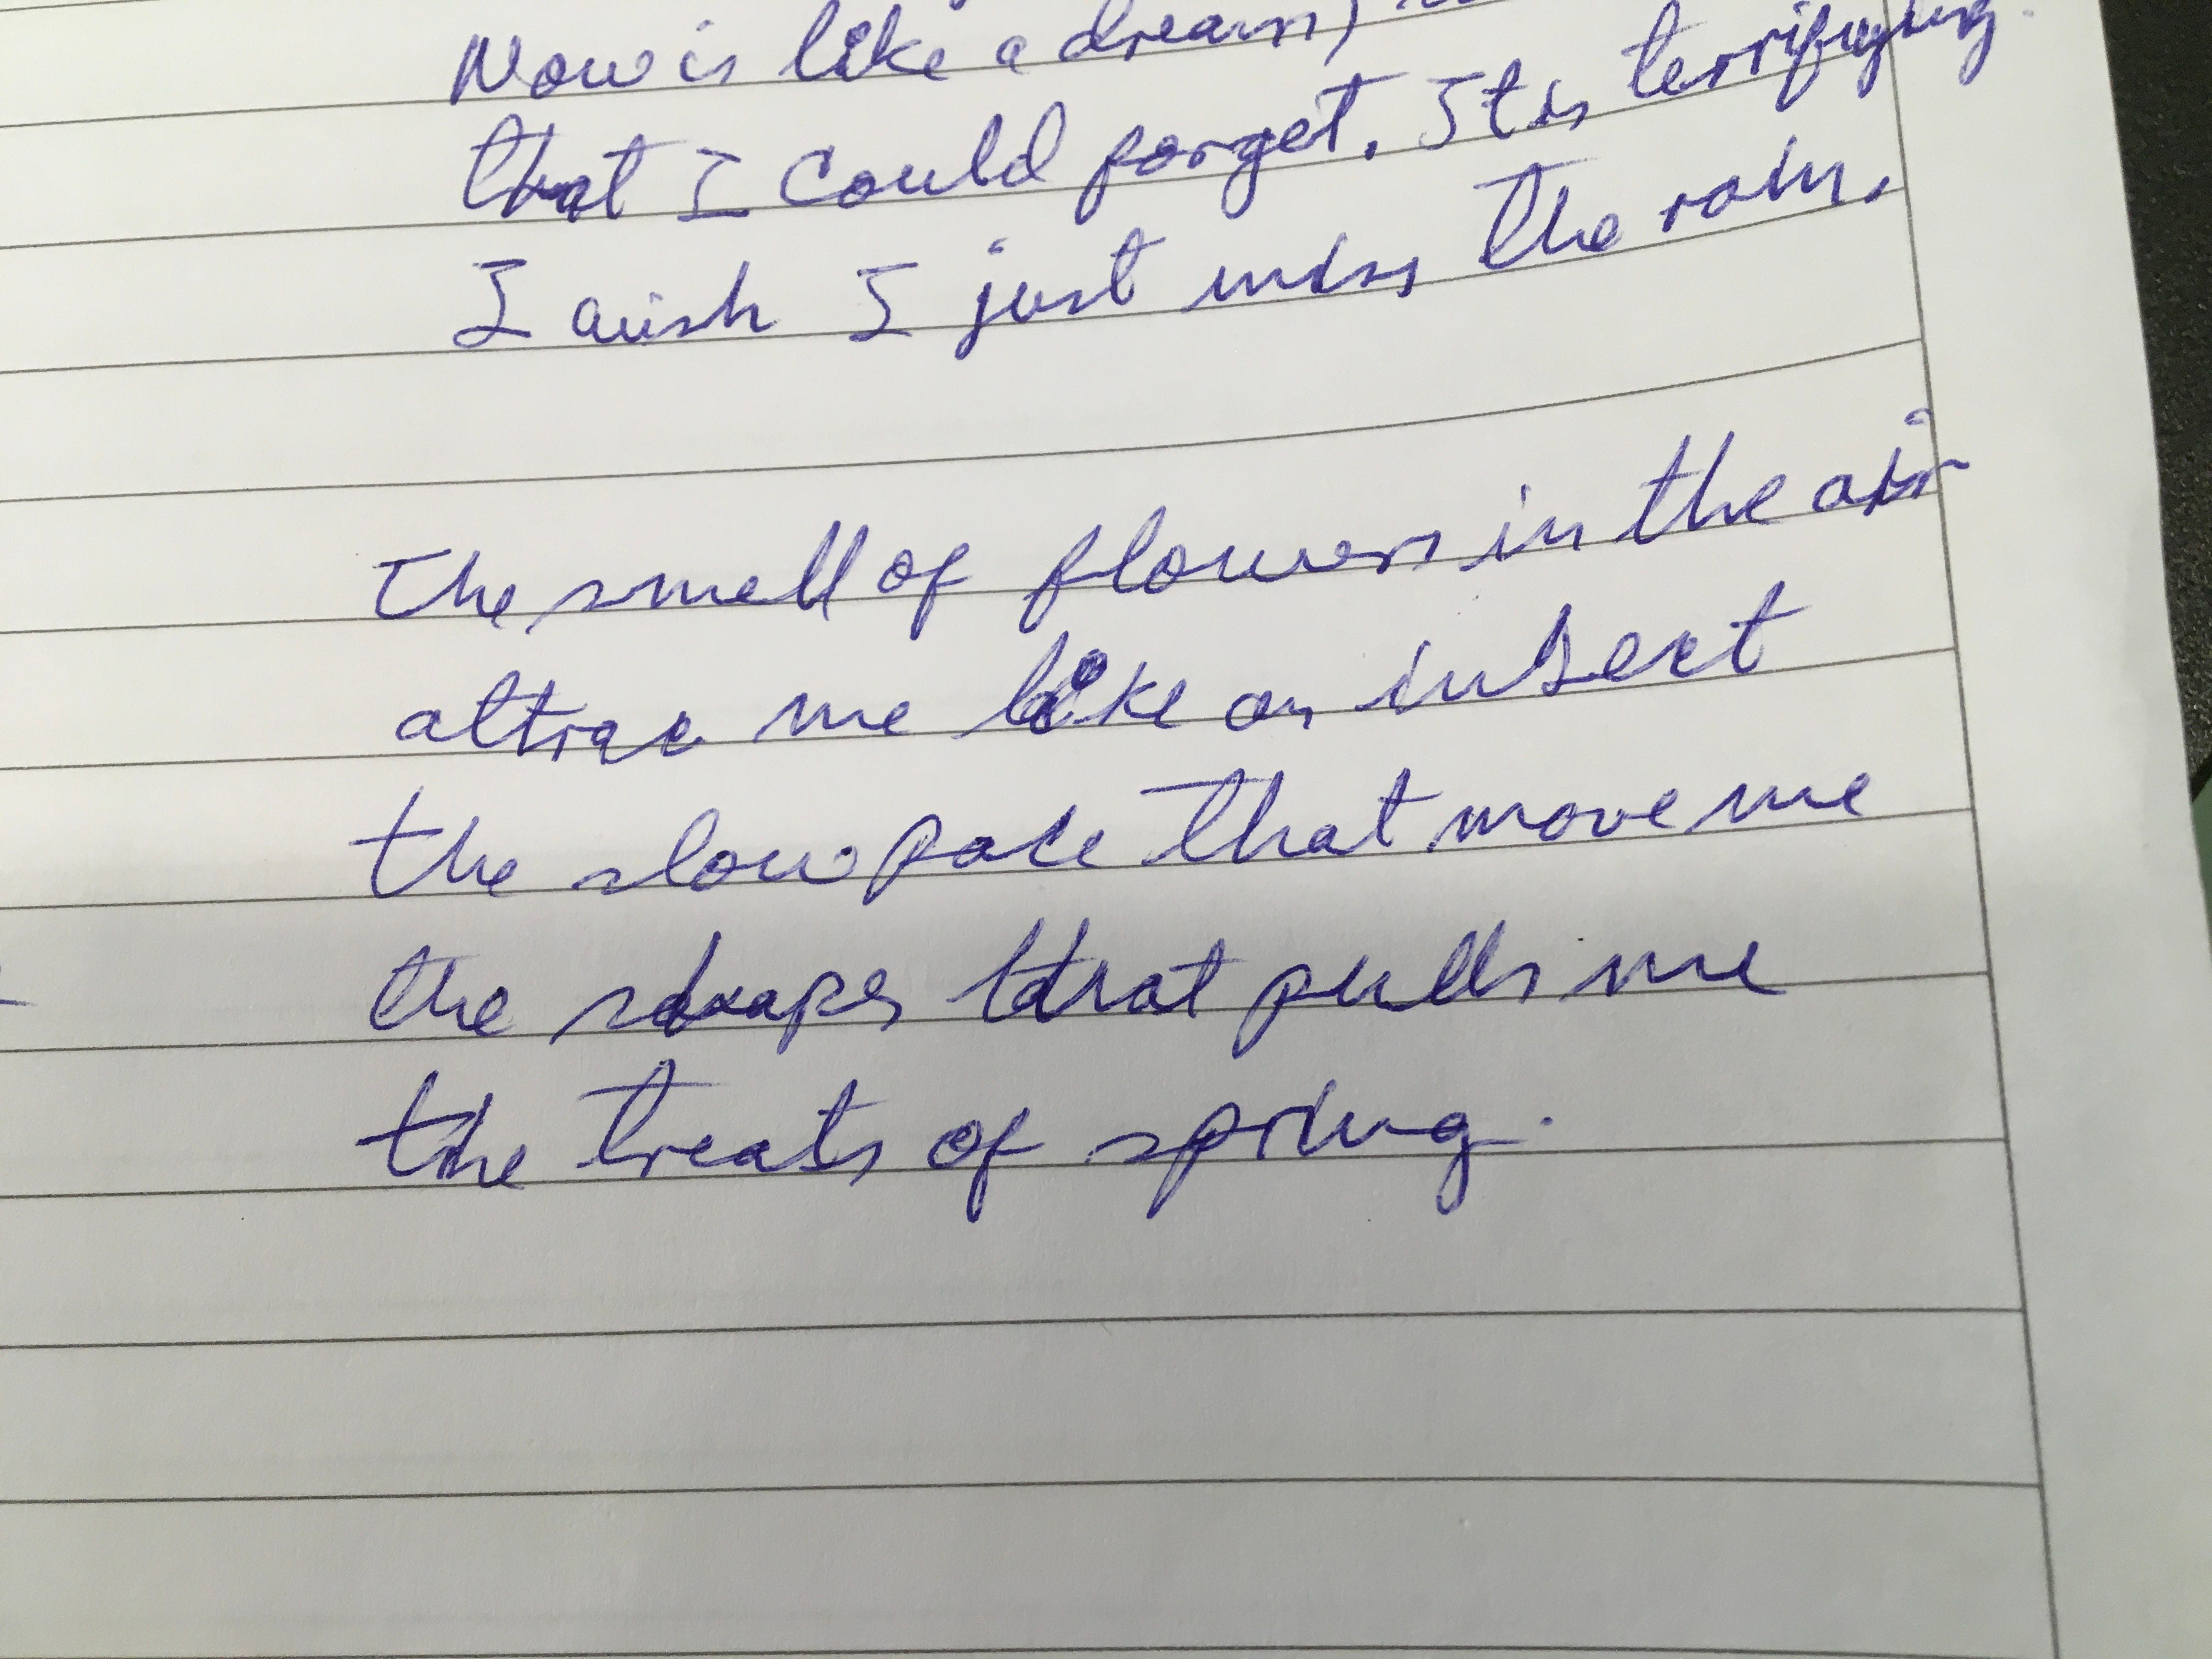 Now is like a dream,
that I could forget. It is terrifying.
I wish I just miss the rain.
The smell of flowers in the air
attrac me like an insect
the slow pace that move me
the shapes that pulls me
the treats of spring.